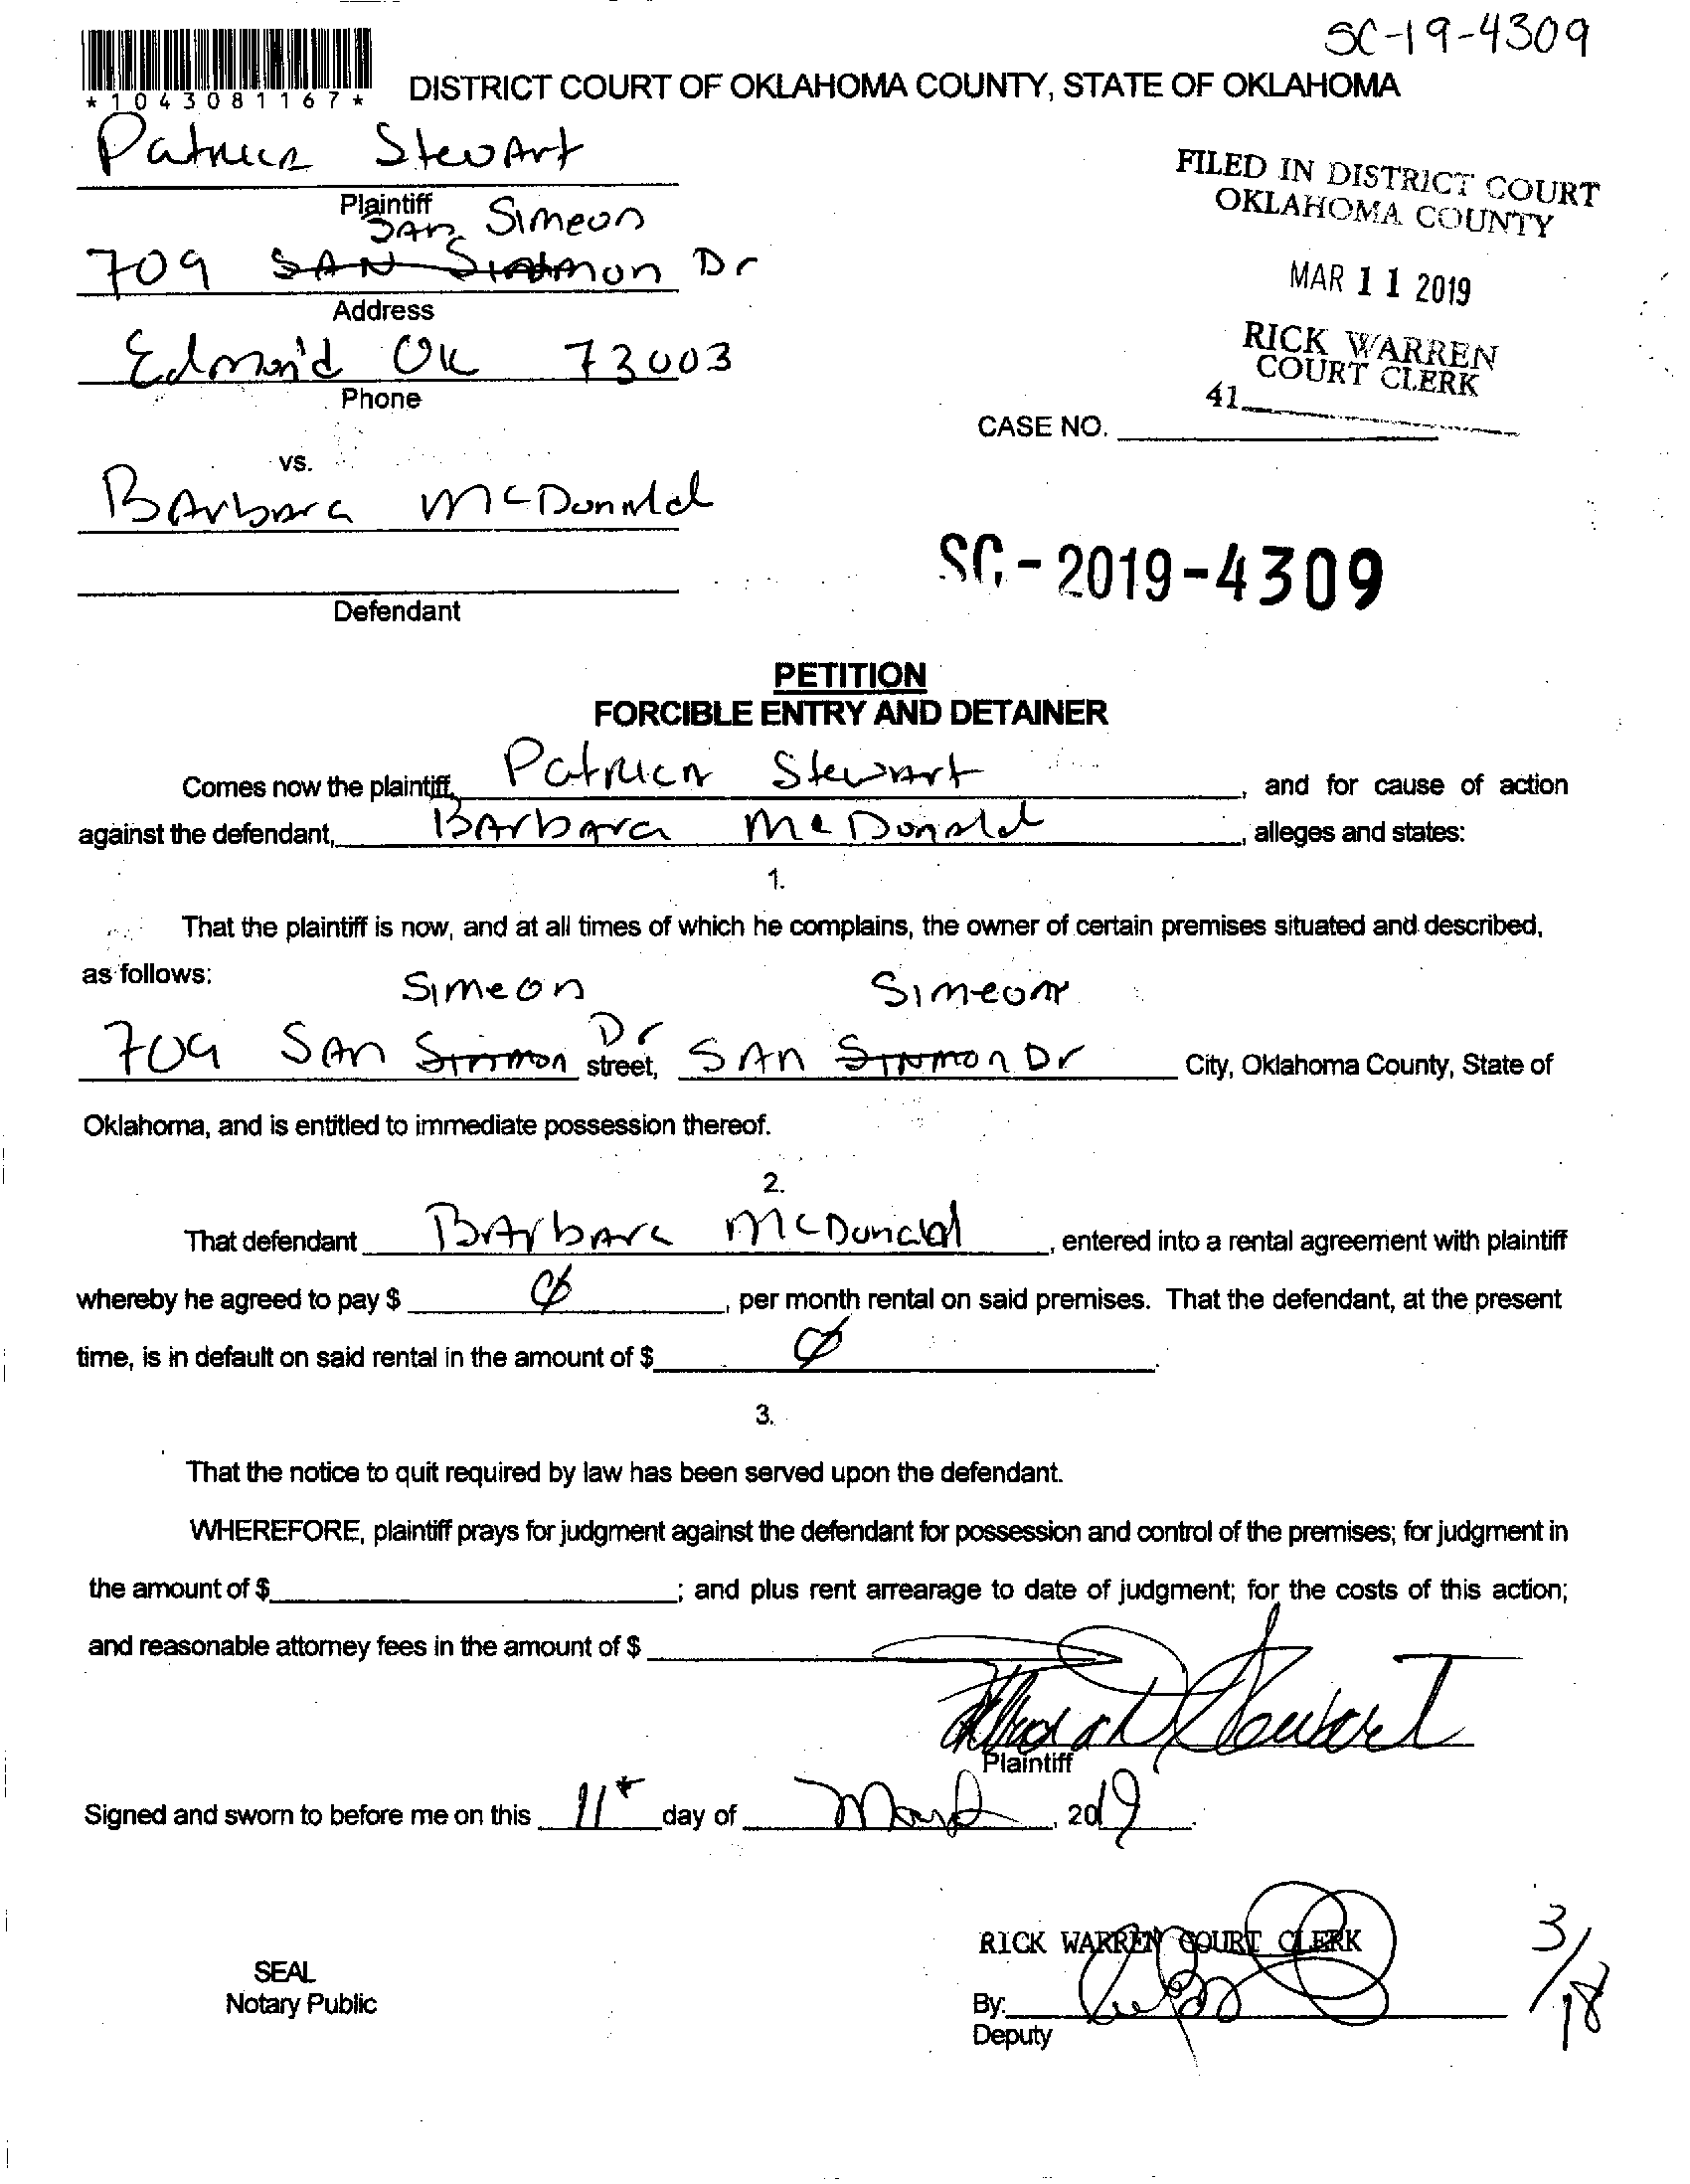 SC-19-4309
*1043081167*
DISTRICT COURT OF OKLAHOMA COUNTY, STATE OF OKLAHOMA
Patricia Stewart
Plaintiff
San Simeon
709 SAN Dr
Address
Edmond OK 73003
Phone
FILED IN DISTRICT COURT
OKLAHOMA COUNTY
MAR 11 2019
RICK WARREN
COURT CLERK
41
CASE NO.
vs.
BArbara McDonald
Defendant
SC-2019-4309
PETITION
FORCIBLE ENTRY AND DETAINER
Comes now the plaintiff, Patricia Stewart, and for cause of action
against the defendant, BArbara McDonald, alleges and states:
1.
That the plaintiff is now, and at all times of which he complains, the owner of certain premises situated and described,
as follows:
Simeon Simeon
709 SAn Dr street, SAn Dr City, Oklahoma County, State of
Oklahoma, and is entitled to immediate possession thereof.
2.
That defendant BArbara McDonald, entered into a rental agreement with plaintiff
whereby he agreed to pay $ Ø, per month rental on said premises. That the defendant, at the present
time, is in default on said rental in the amount of $ Ø.
3.
That the notice to quit required by law has been served upon the defendant.
WHEREFORE, plaintiff prays for judgment against the defendant for possession and control of the premises; for judgment in
the amount of $ ; and plus rent arrearage to date of judgment; for the costs of this action;
and reasonable attorney fees in the amount of $
Stewart
Plaintiff
Signed and sworn to before me on this 11th day of March, 2019.
RICK WARREN COURT CLERK
3/18
SEAL
Notary Public
By:
Deputy